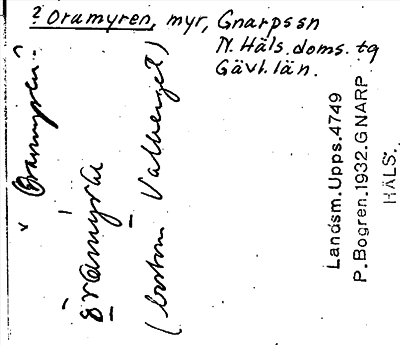 ? Oramyren, myr, Gnarps sn
N. Häls. doms. tg
Gävl. län.
Oramyren
(bortom Valberget)
Landsm. Upps. 4749
P. Bogren. 1932. GNARP
HÄLS.